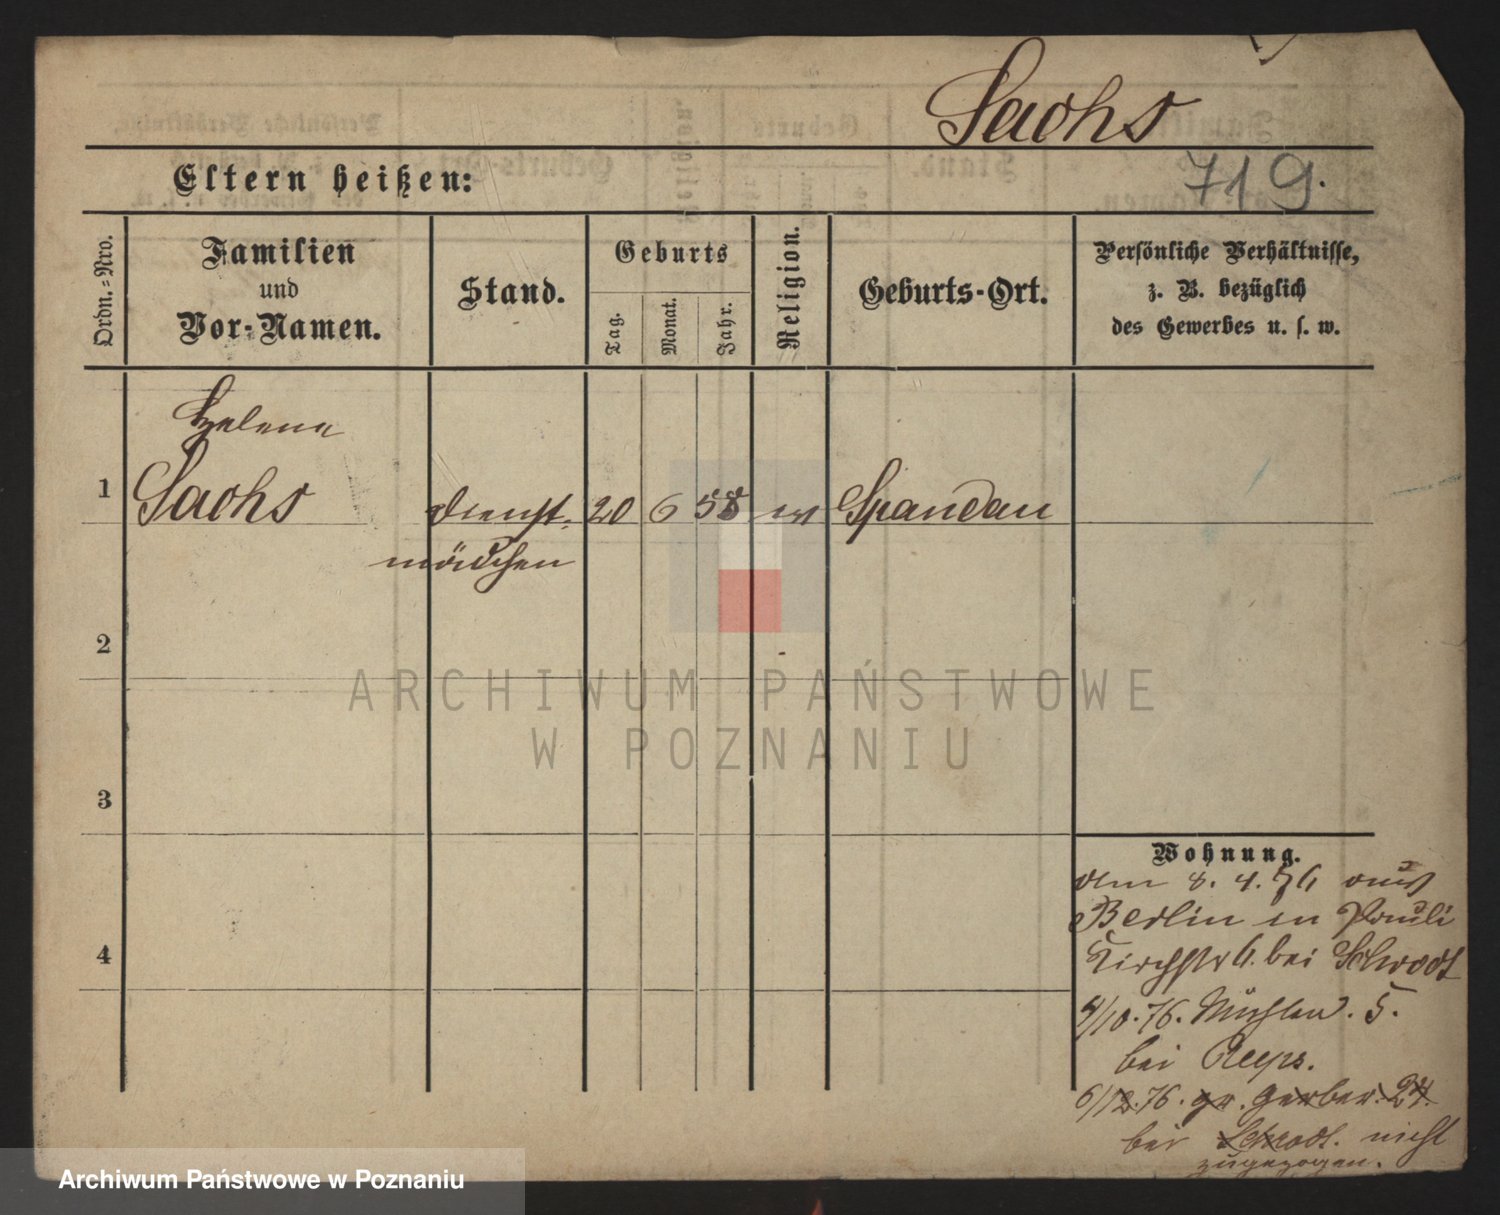 Sachs
Eltern heißen:
719.
Ordn.-Nro.
Familien
und
Vor-Namen.
Stand.
Geburts
Tag.
Monat.
Jahr.
Religion.
Geburts-Ort.
Persönliche Verhältnisse,
z. B. bezüglich
des Gewerbes u. s. w.
Helene
1 Sachs Dienst- 20 6 58 ev Spandau
mädchen
2
3
4
Wohnung.
Am 8. 4. 76 aus
Berlin in Pauli
Kirchstr 6. bei Schrodt
4/10. 76. Mühlen. 5.
bei
6/12. 76. gr. Gerber. 24.
bei Schrodt. nicht
zugezogen.
ARCHIWUM PAŃSTWOWE
W POZNANIU
Archiwum Państwowe w Poznaniu